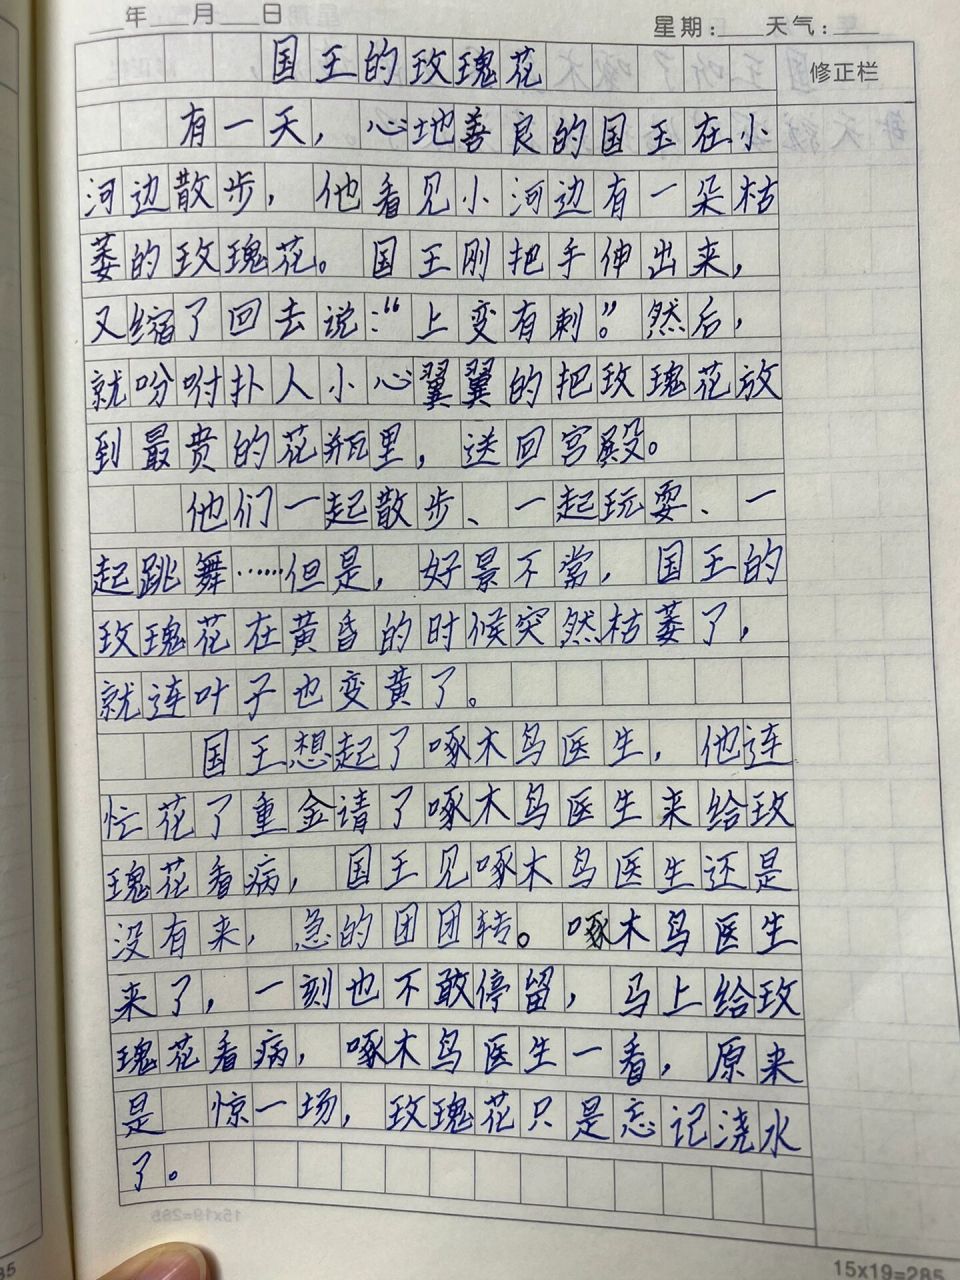 年 月 日 星期: 天气:
国王的玫瑰花 修正栏
有一天，心地善良的国王在小
河边散步，他看见小河边有一朵枯
萎的玫瑰花。国王刚把手伸出来，
又缩了回去说：“上变有刺”。然后，
就吩咐扑人小心翼翼的把玫瑰花放
到最贵的花瓶里，送回宫殿。
他们一起散步、一起玩耍、一
起跳舞……但是，好景不常，国王的
玫瑰花在黄昏的时候突然枯萎了，
就连叶子也变黄了。
国王想起了啄木鸟医生，他连
忙花了重金请了啄木鸟医生来给玫
瑰花看病，国王见啄木鸟医生还是
没有来，急的团团转。啄木鸟医生
来了，一刻也不敢停留，马上给玫
瑰花看病，啄木鸟医生一看，原来
是 惊一场，玫瑰花只是忘记浇水
了。
15x19=285